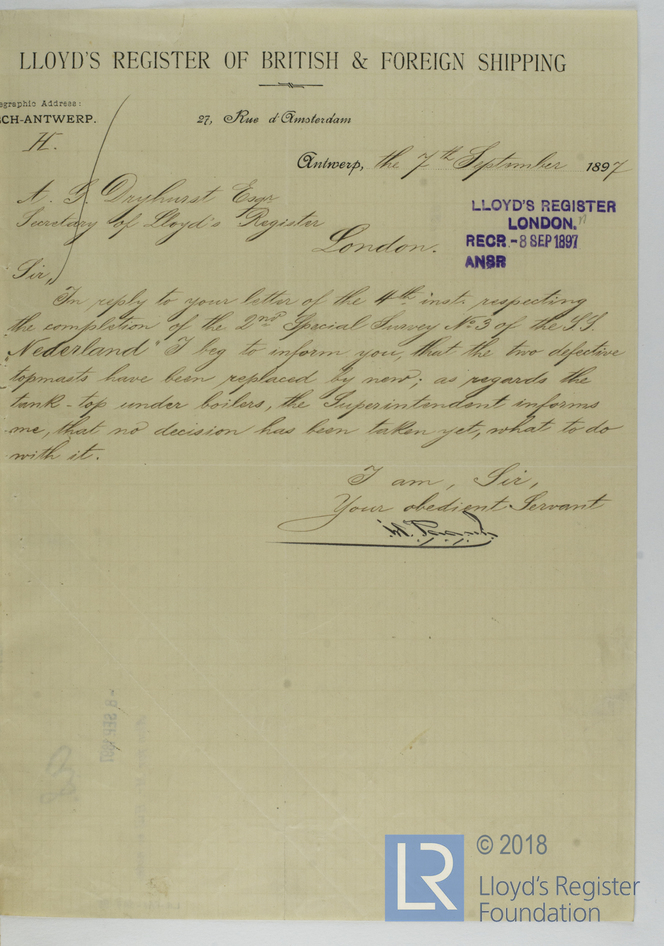 LLOYD'S REGISTER OF BRITISH & FOREIGN SHIPPING
egraphic Address:
CH-ANTWERP.
H.
27, Rue d'Amsterdam
Antwerp, the 7th September 1897
LLOYD'S REGISTER
LONDON.
RECR.-8 SEP 1897
ANSR
A. G. Dryhurst Esqr
Secretary of Lloyd's Register
London.
Sir,
In reply to your letter of the 4th inst. respecting
the completion of the 2nd Special Survey No 3 of the SS.
Nederland" I beg to inform you, that the two defective
topmasts have been replaced by new; as regards the
tank-top under boilers, the Superintendent informs
me, that no decision has been taken yet, what to do
with it.
I am, Sir,
Your obedient Servant
8 SEP 1897
LR
© 2018
Lloyd's Register
Foundation